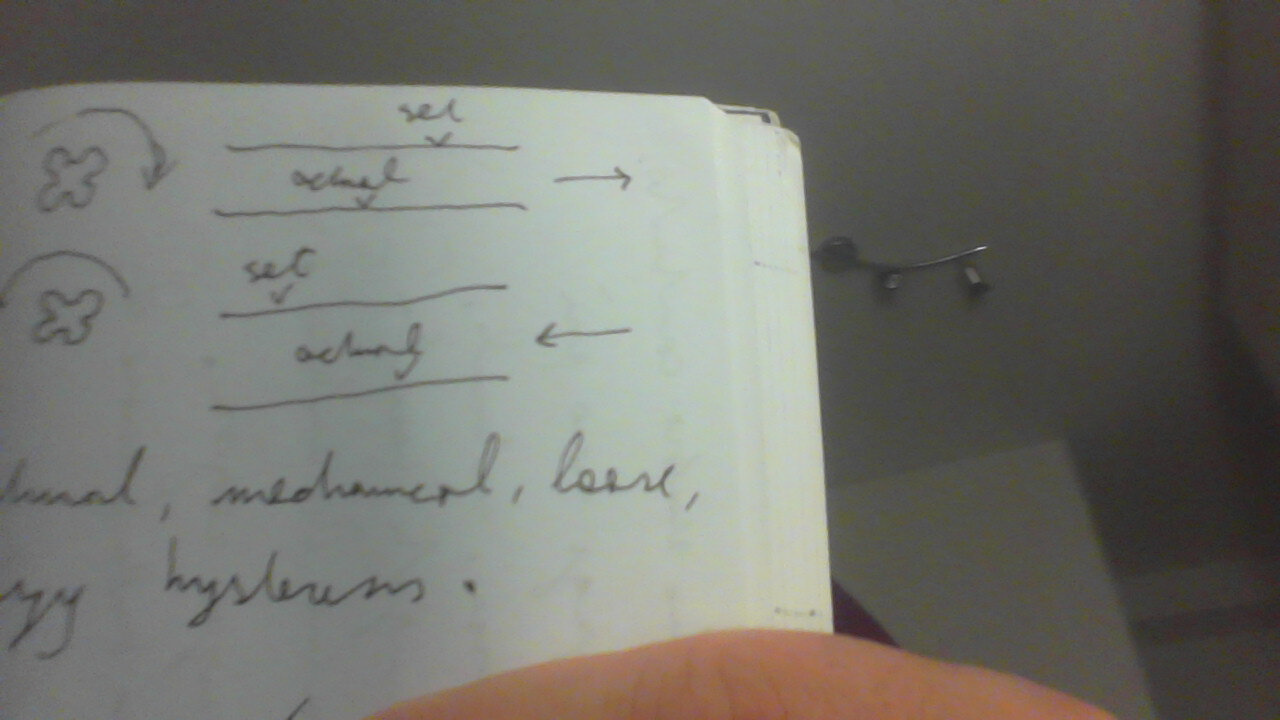 set
actual
set
actual
, mechanical, loose,
hysteresis.